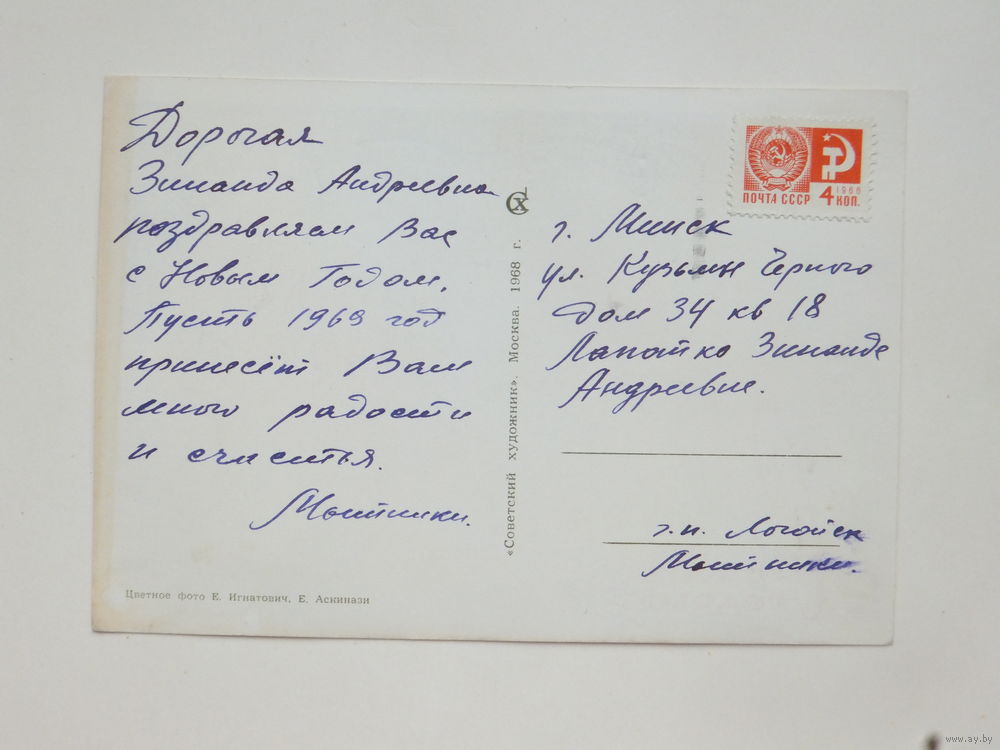 Дорогая
Зинаида Андреевна
поздравляем Вас
с Новым Годом.
Пусть 1969 год
принесёт Вам
много радости
и счастья.
Мытники.
Цветное фото Е. Игнатович, Е. Аскинази
«Советский художник». Москва. 1968 г.
СХ
ПОЧТА СССР 4 КОП.
1966
г. Минск
ул. Кузьмы Чёрного
дом 34 кв 18
Лапотко Зинаиде
Андреевне.
г.п. Логойск
Мытники.
www.ay.by